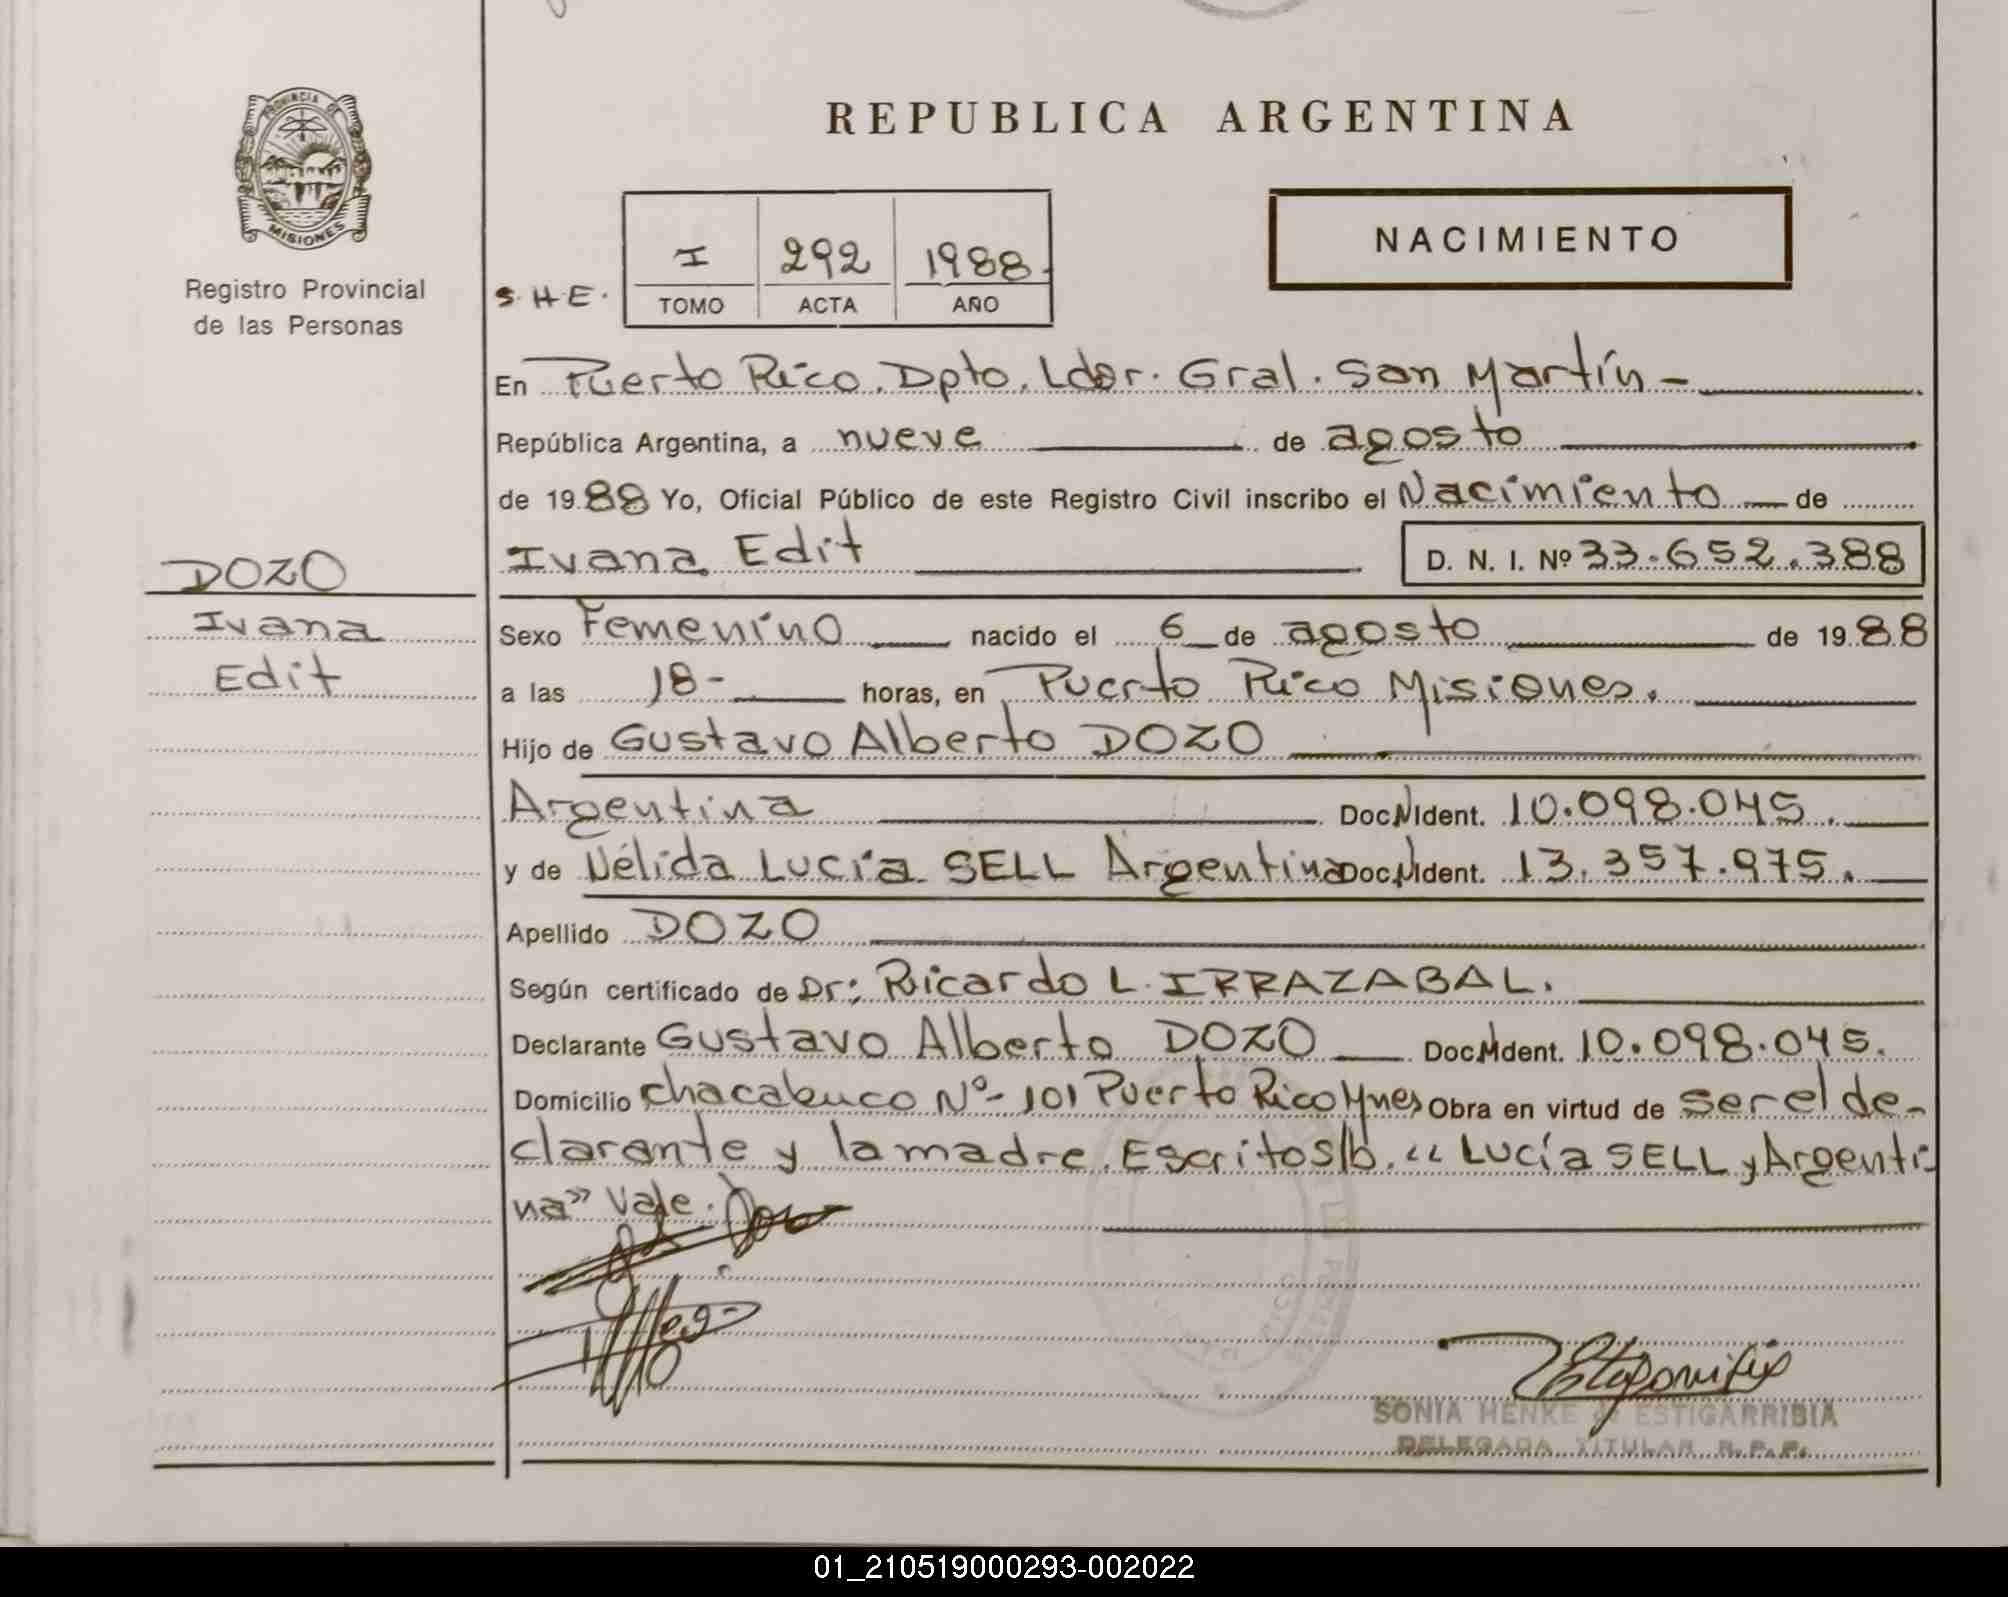 PROVINCIA DE
MISIONES
Registro Provincial
de las Personas
REPUBLICA ARGENTINA
NACIMIENTO
S.H.E.
I 292 1988
TOMO ACTA AÑO
En Puerto Rico. Dpto. Ldor. Gral. San Martín
República Argentina, a nueve de agosto
de 1988 Yo, Oficial Público de este Registro Civil inscribo el Nacimiento de
DOZO
Ivana
Edit
Ivana Edit D. N. I. Nº 33.652.388
Sexo Femenino nacido el 6 de agosto de 1988
a las 18- horas, en Puerto Rico Misiones.
Hijo de Gustavo Alberto DOZO
Argentina Doc. Ident. 10.098.045.
y de Nélida Lucía SELL Argentina Doc. Ident. 13.357.975.
Apellido DOZO
Según certificado de Dr: Ricardo L. IRRAZABAL.
Declarante Gustavo Alberto DOZO Doc. Ident. 10.098.045.
Domicilio Chacabuco Nº- 101 Puerto Rico Mnes Obra en virtud de ser el de-
clarante y la madre. Escrito s/b. "Lucía SELL y Argenti-
na" Vale.
SONIA HENKE de ESTIGARRIBIA
DELEGADA TITULAR R. P. P.
01_210519000293-002022